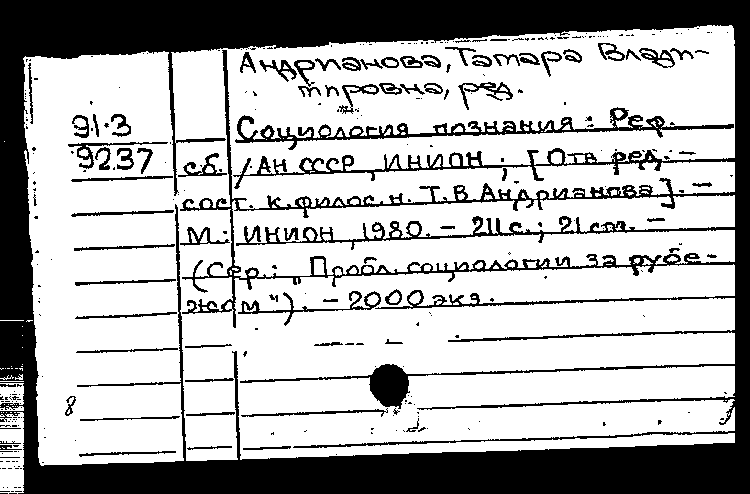 Андрианова, Татара Влади-
мировна, ред.
91.3 Социология познания : Реф.
9237 сб. / АН СССР, ИНИОН ; [Отв ред. -
сост. к.филос.н. Т.В Андрианова]. -
М.: ИНИОН, 1980. - 211 с.; 21 cm. -
(Сер.: „Пробл. социологии за рубе-
жом"). - 2000 экз.
8